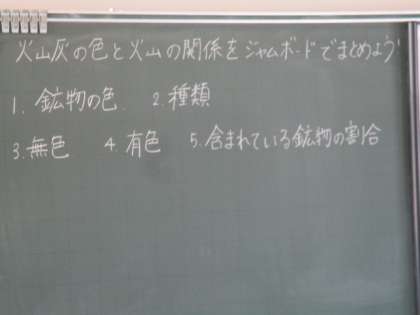 火山灰の色と火山の関係をジャムボードでまとめよう!
1. 鉱物の色. 2. 種類
3. 無色 4. 有色 5. 含まれている鉱物の割合